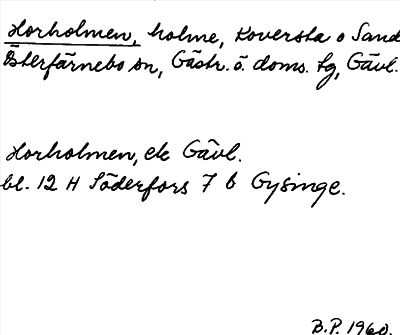 Horholmen, holme, Koversta o Sand
Österfärnebo sn, Gästr. ö. doms. tg, Gävl.
Horholmen, ek Gävl.
bl. 12 H Söderfors 7 b Gysinge.
B.P. 1960.